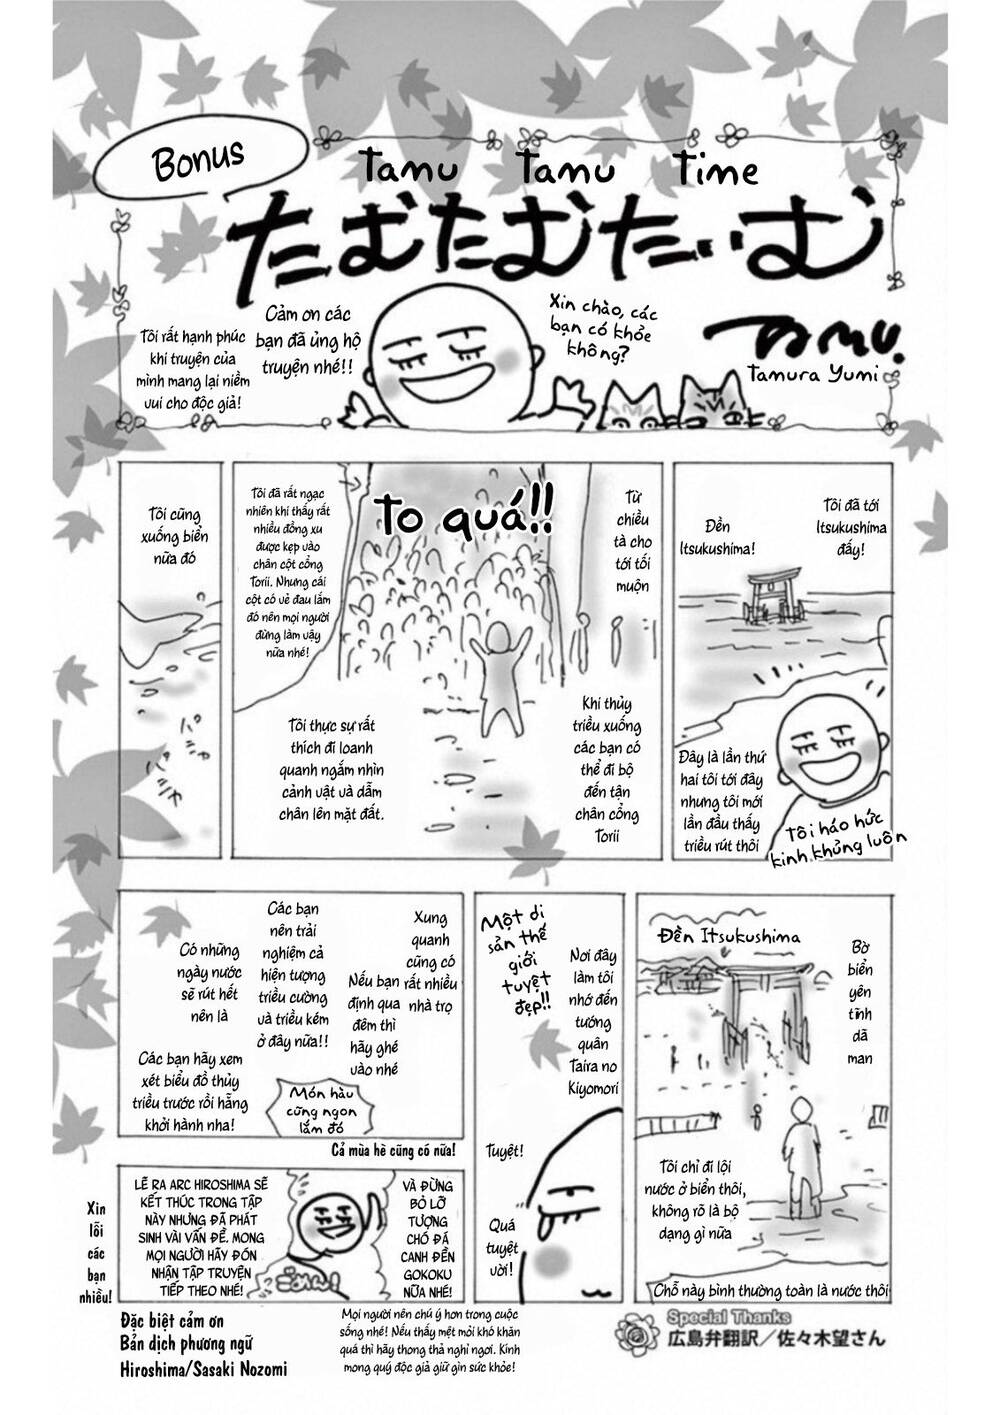 Bonus
Tamu Tamu Time
たむたむたいむ
Xin chào, các
bạn có khỏe
không?
TAMU.
Tamura Yumi
Cảm ơn các
bạn đã ủng hộ
truyện nhé!!
Tôi rất hạnh phúc
khi truyện của
mình mang lại niềm
vui cho độc giả!
Tôi đã tới
Itsukushima
đấy!
Đền
Itsukushima!
Đây là lần thứ
hai tôi tới đây
nhưng tôi mới
lần đầu thấy
triều rút thôi
Tôi háo hức
kinh khủng luôn
Từ
chiều
tà cho
tới tối
muộn
To quá!!
Khi thủy
triều xuống
các bạn có
thể đi bộ
đến tận
chân cổng
Torii
Tôi đã rất ngạc
nhiên khi thấy rất
nhiều đồng xu
được kẹp vào
chân cột cổng
Torii. Nhưng cái
cột có vẻ đau lắm
đó nên mọi người
đừng làm vậy
nữa nhé!
Tôi thực sự rất
thích đi loanh
quanh ngắm nhìn
cảnh vật và dẫm
chân lên mặt đất.
Tôi cũng
xuống biển
nữa đó
パシャ
パシャ
Bờ
biển
yên
tĩnh
dã
man
Đền Itsukushima
Tôi chỉ đi lội
nước ở biển thôi,
không rõ là bộ
dạng gì nữa
Chỗ này bình thường toàn là nước thôi
Nơi đây
làm tôi
nhớ đến
tướng
quân
Taira no
Kiyomori
Một di
sản thế
giới
tuyệt
đẹp!!
Tuyệt!
Quá
tuyệt
vời!
Xung
quanh
cũng có
rất nhiều
nhà trọ
Nếu bạn
định qua
đêm thì
hãy ghé
vào nhé
Các bạn
nên trải
nghiệm cả
hiện tượng
triều cường
và triều kém
ở đây nữa!!
Có những
ngày nước
sẽ rút hết
nên là
Các bạn hãy xem
xét biểu đồ thủy
triều trước rồi hẵng
khởi hành nha!
Món hàu
cũng ngon
lắm đó
Cả mùa hè cũng có nữa!
VÀ ĐỪNG
BỎ LỠ
TƯỢNG
CHÓ ĐÁ
CANH ĐỀN
GOKOKU
NỮA NHÉ!
ごめん!
LẼ RA ARC HIROSHIMA SẼ
KẾT THÚC TRONG TẬP
NÀY NHƯNG ĐÃ PHÁT
SINH VÀI VẤN ĐỀ. MONG
MỌI NGƯỜI HÃY ĐÓN
NHẬN TẬP TRUYỆN
TIẾP THEO NHÉ!
Xin
lỗi
các
bạn
nhiều!
Đặc biệt cảm ơn
Bản dịch phương ngữ
Hiroshima/Sasaki Nozomi
Mọi người nên chú ý hơn trong cuộc
sống nhé! Nếu thấy mệt mỏi khó khăn
quá thì hãy thong thả nghỉ ngơi. Kính
mong quý độc giả giữ gìn sức khỏe!
Special Thanks
広島弁翻訳／佐々木望さん